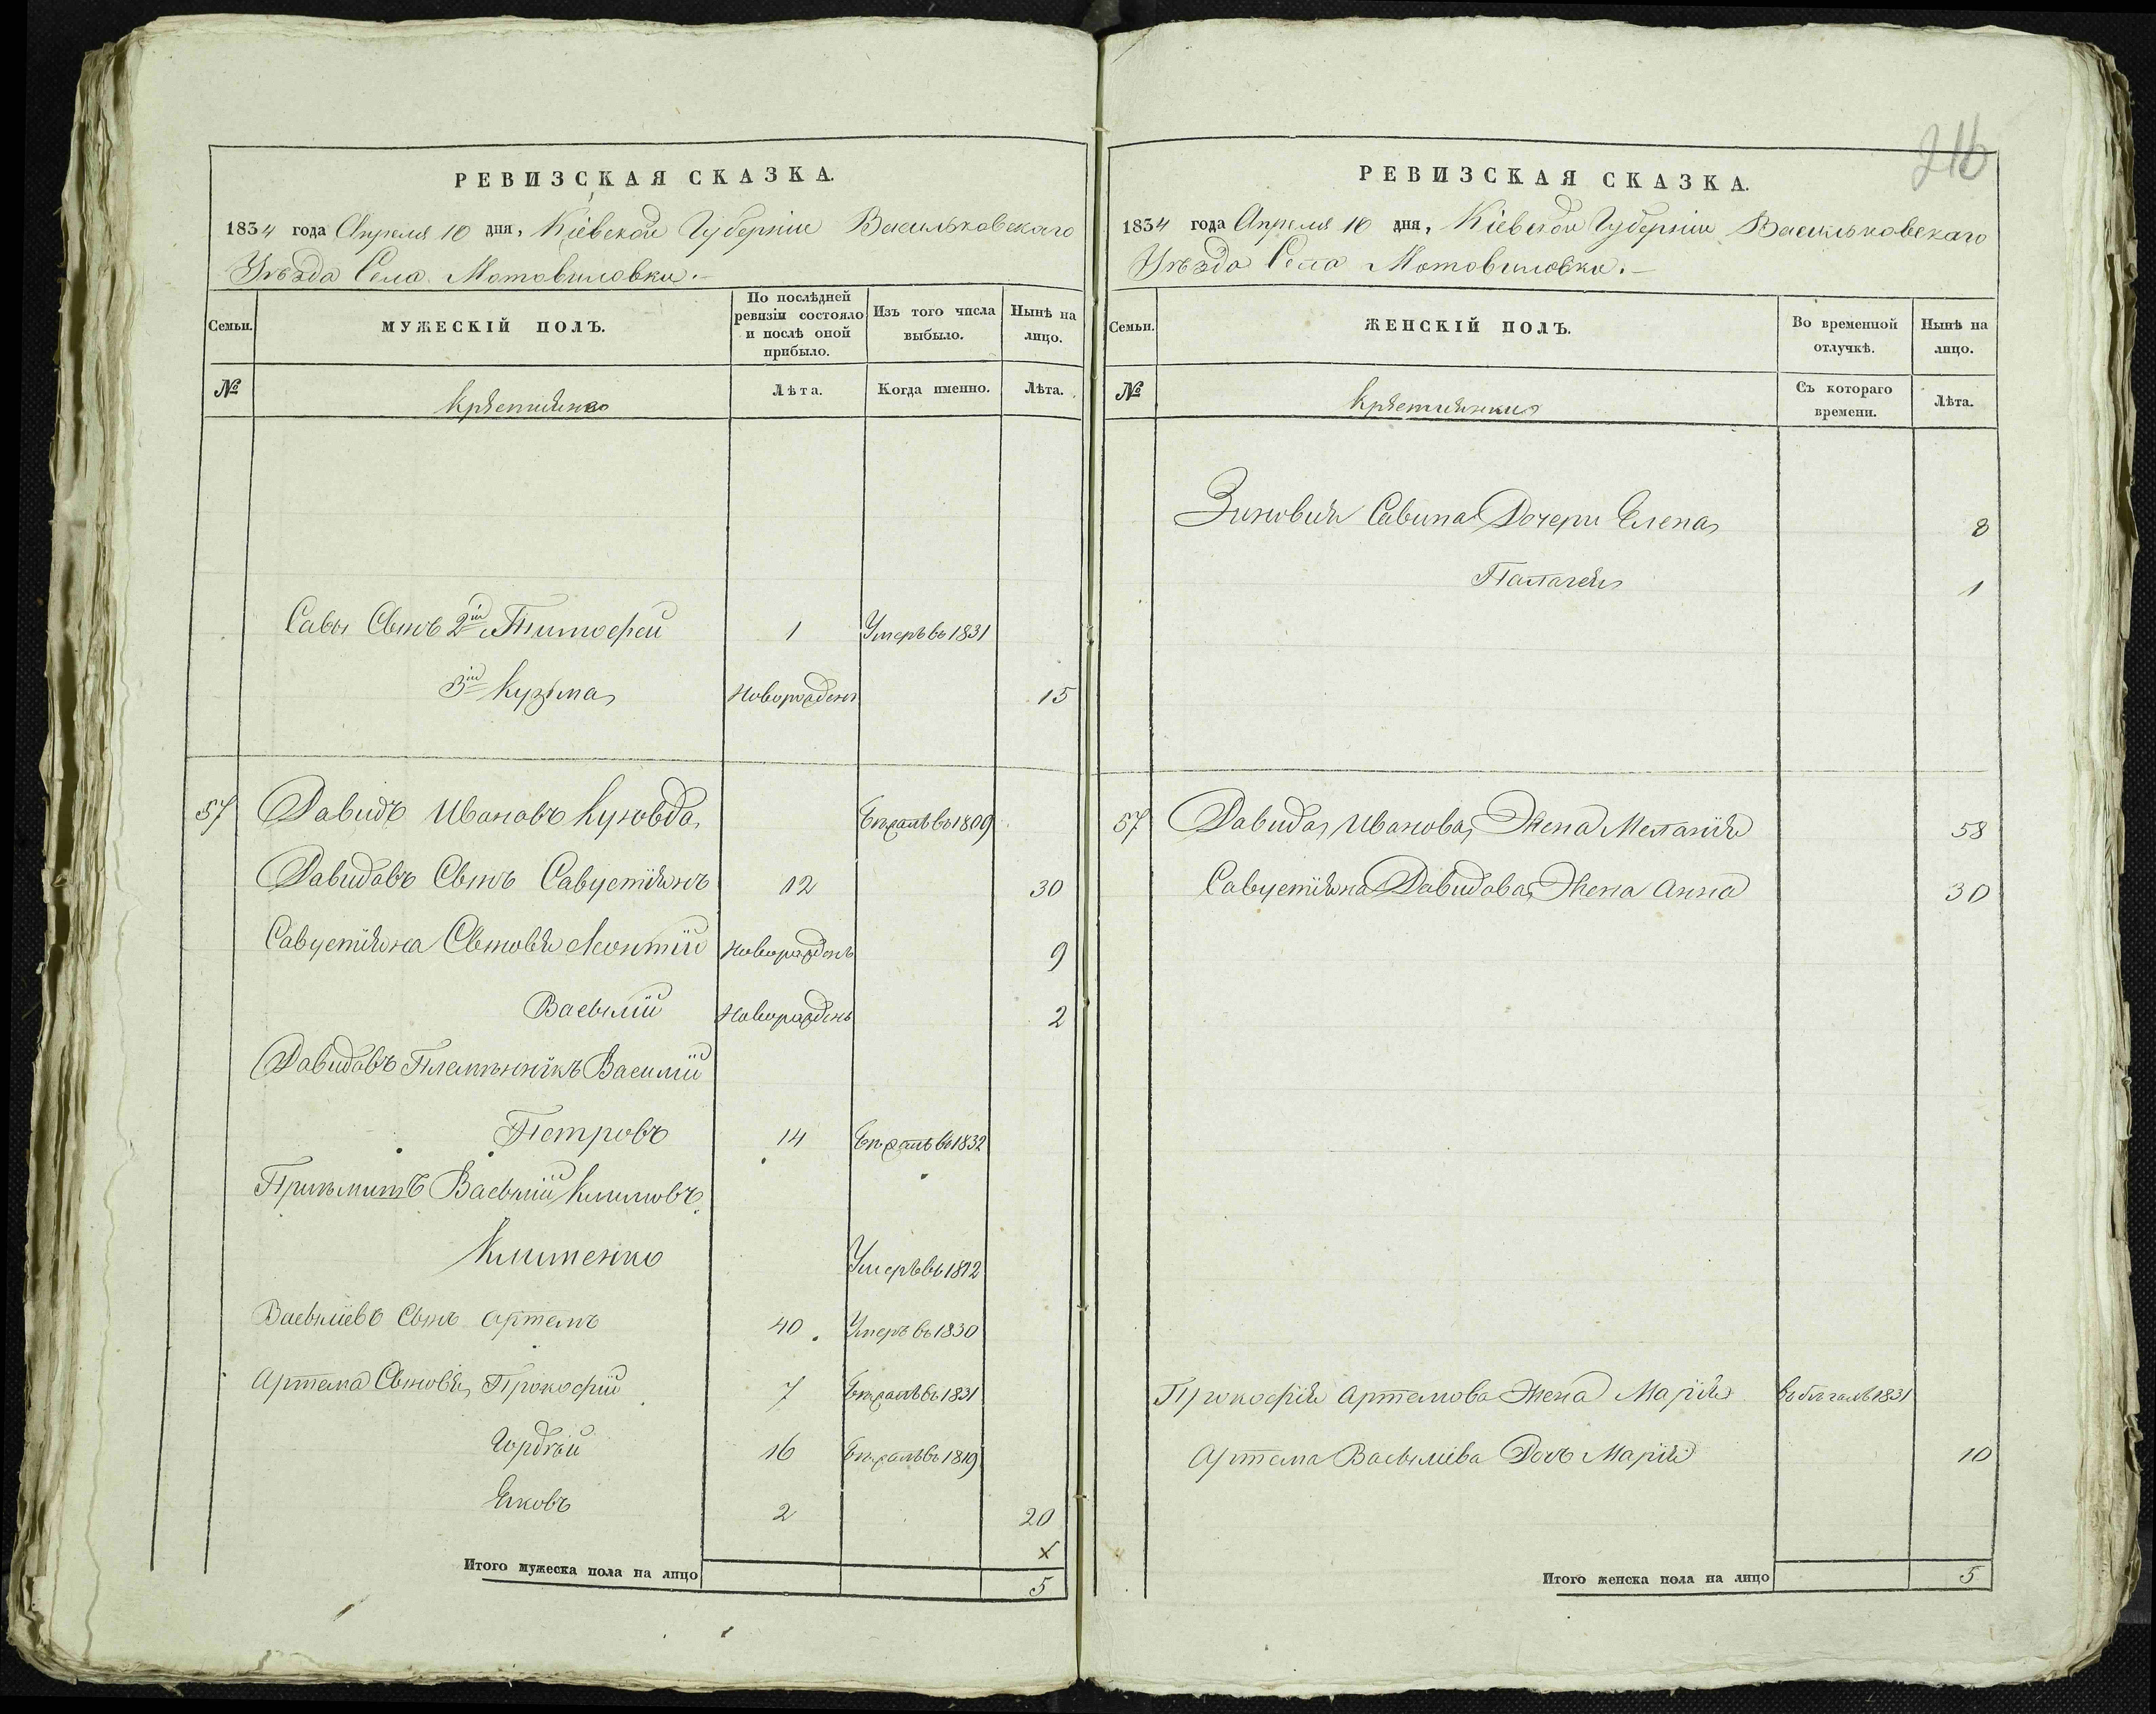 216
РЕВИЗСКАЯ СКАЗКА.
1834 года Апреля 10 дня, Кіевской Губерніи Васильковскаго
Уѣзда Села Мотовиловки.
Семьи.
МУЖЕСКІЙ ПОЛЪ.
По послѣдней ревизіи состояло и послѣ оной прибыло.
Изъ того числа выбыло.
Нынѣ на лицо.
№
Крѣстиянѣ
Лѣта.
Когда именно.
Лѣта.
Савы Сынъ 2ій Тимофей 1 Умеръ въ 1831
3ій Кузьма Новорожденъ 15
57 Давидъ Ивановъ 1809
Давидовъ Сынъ Савустіянъ 12 30
Савустіяна Сыновья Леонтій Новорожденъ 9
Васылій Новорожденъ 2
Давидовъ Племянникъ Василій
Петровъ 14 1832
Васылій Климовъ
Клименко Умеръ въ 1812
Васылíевъ Сынъ Артемъ 40 Умеръ въ 1830
Артема Сыновья Прокофій 7 1831
Гордѣй 16 1819
Яковъ 2 20
х
Итого мужеска пола на лицо 5
РЕВИЗСКАЯ СКАЗКА.
1834 года Апреля 10 дня, Кіевской Губерніи Васильковскаго
Уѣзда Села Мотовиловки.
Семьи.
ЖЕНСКІЙ ПОЛЪ.
Во временной отлучкѣ.
Нынѣ на лицо.
№
Крѣстиянки
Съ котораго времени.
Лѣта.
Зиновия Савина Дочери Елена 8
Палагея 1
57 Давида Иванова Жена Меланія 58
Савустіяна Давидова Жена Анна 30
Прокофія Артемова Жена Марія 1831
Артема Васыліева Дочь Марія 10
Итого женска пола на лицо 5